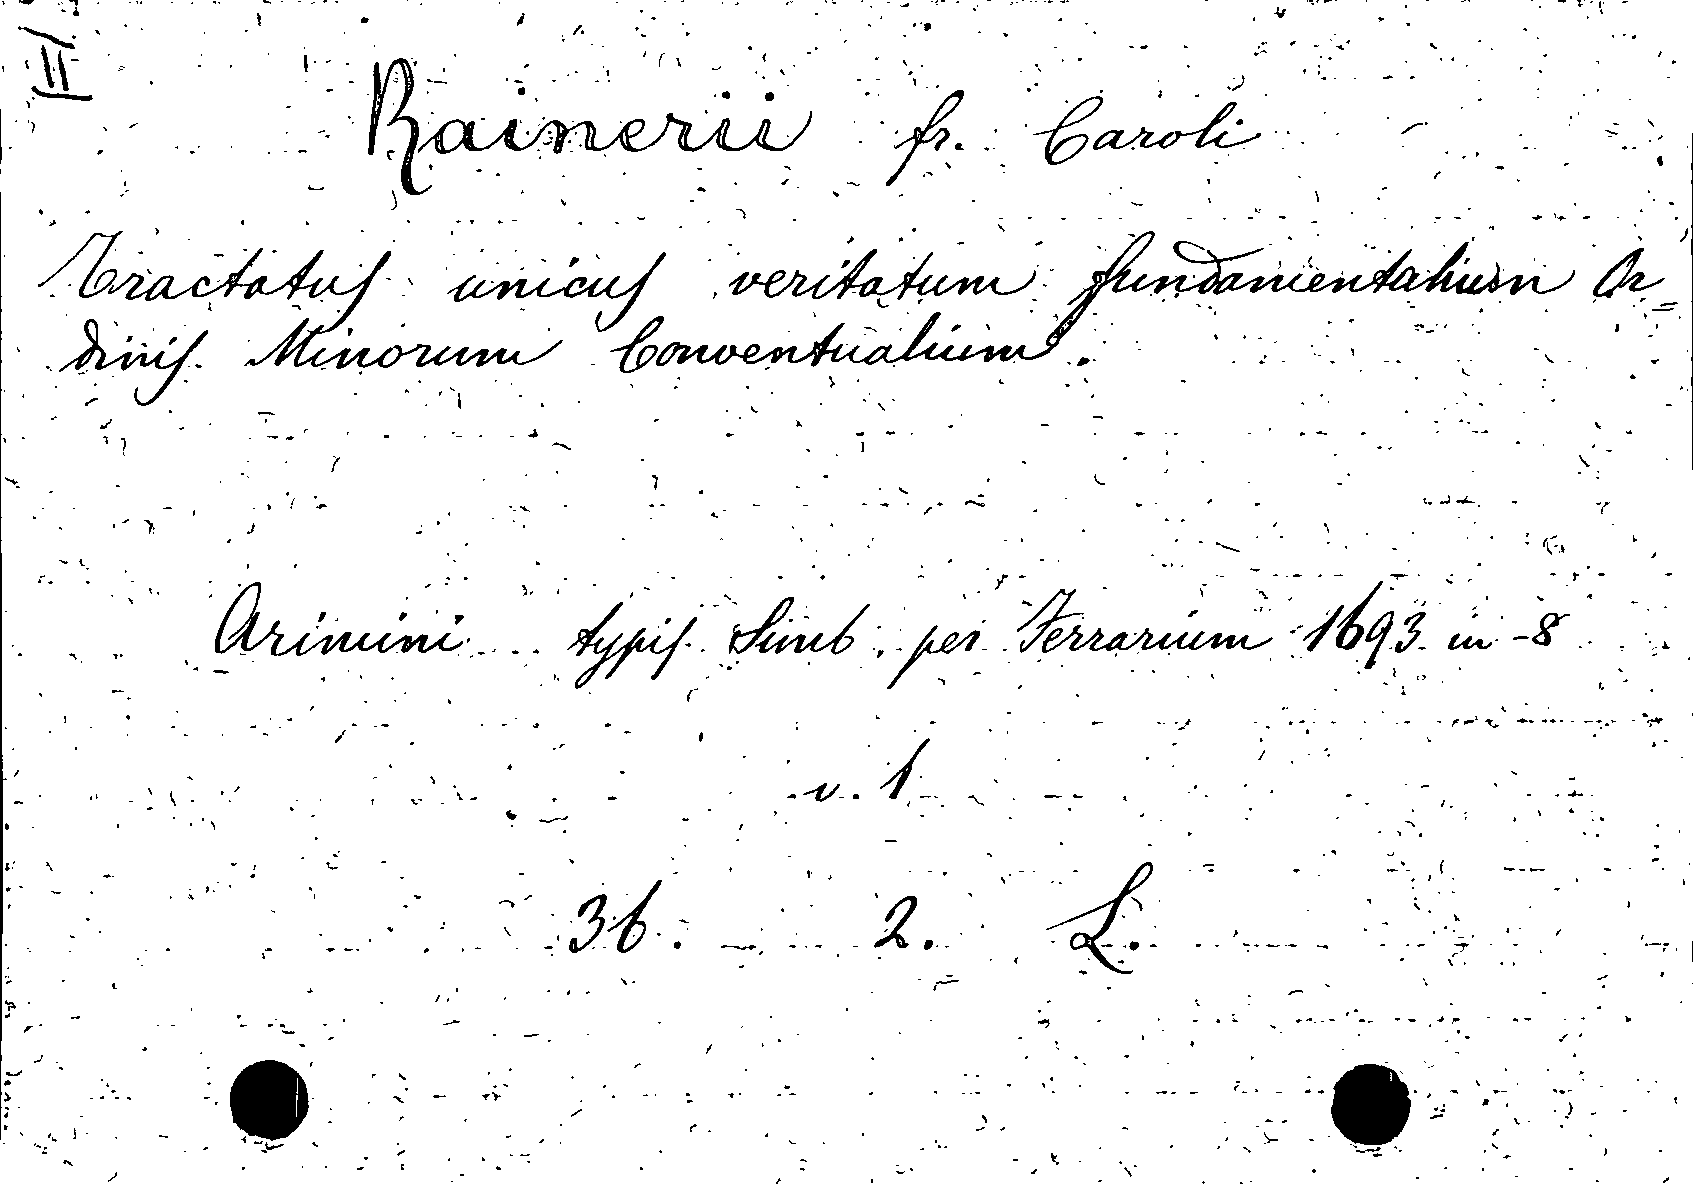 II
Rainerii fr. Caroli
Tractatus unicus veritatum fundamentalium Or=
dinis Minorum Conventualium.
Arimini typis Simb. per Ferrarium 1693 in-8
v. 1
36. 2. L.